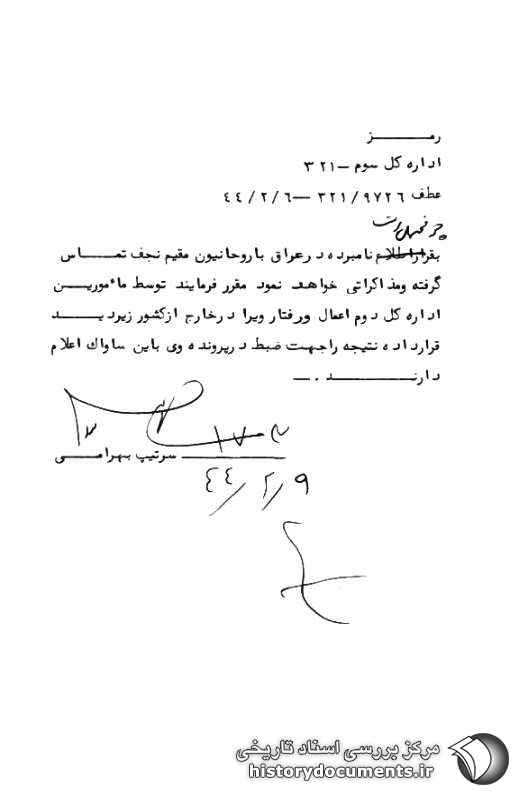 رمــــــز
اداره کل سوم – ۳۲۱
عطف ۳۲۱/۹۷۲۶ – ۴۴/۲/۶
بقراراطلاع نامبرده در عراق با روحانیون مقیم نجف تمــاس
گرفته ومذاکراتی خواهد نمود مقرر فرمایند توسط ماءموریــن
اداره کل دوم اعمال ورفتار ویرا در خارج ازکشور زیردیـــد
قرارداده نتیجه را جهت ضبط در پرونده وی باین ساواك اعلام
دارنــــد . ــ
سرتیپ بهرامــی
۴۴/۲/۹
مرکز بررسی اسناد تاریخی
historydocuments.ir